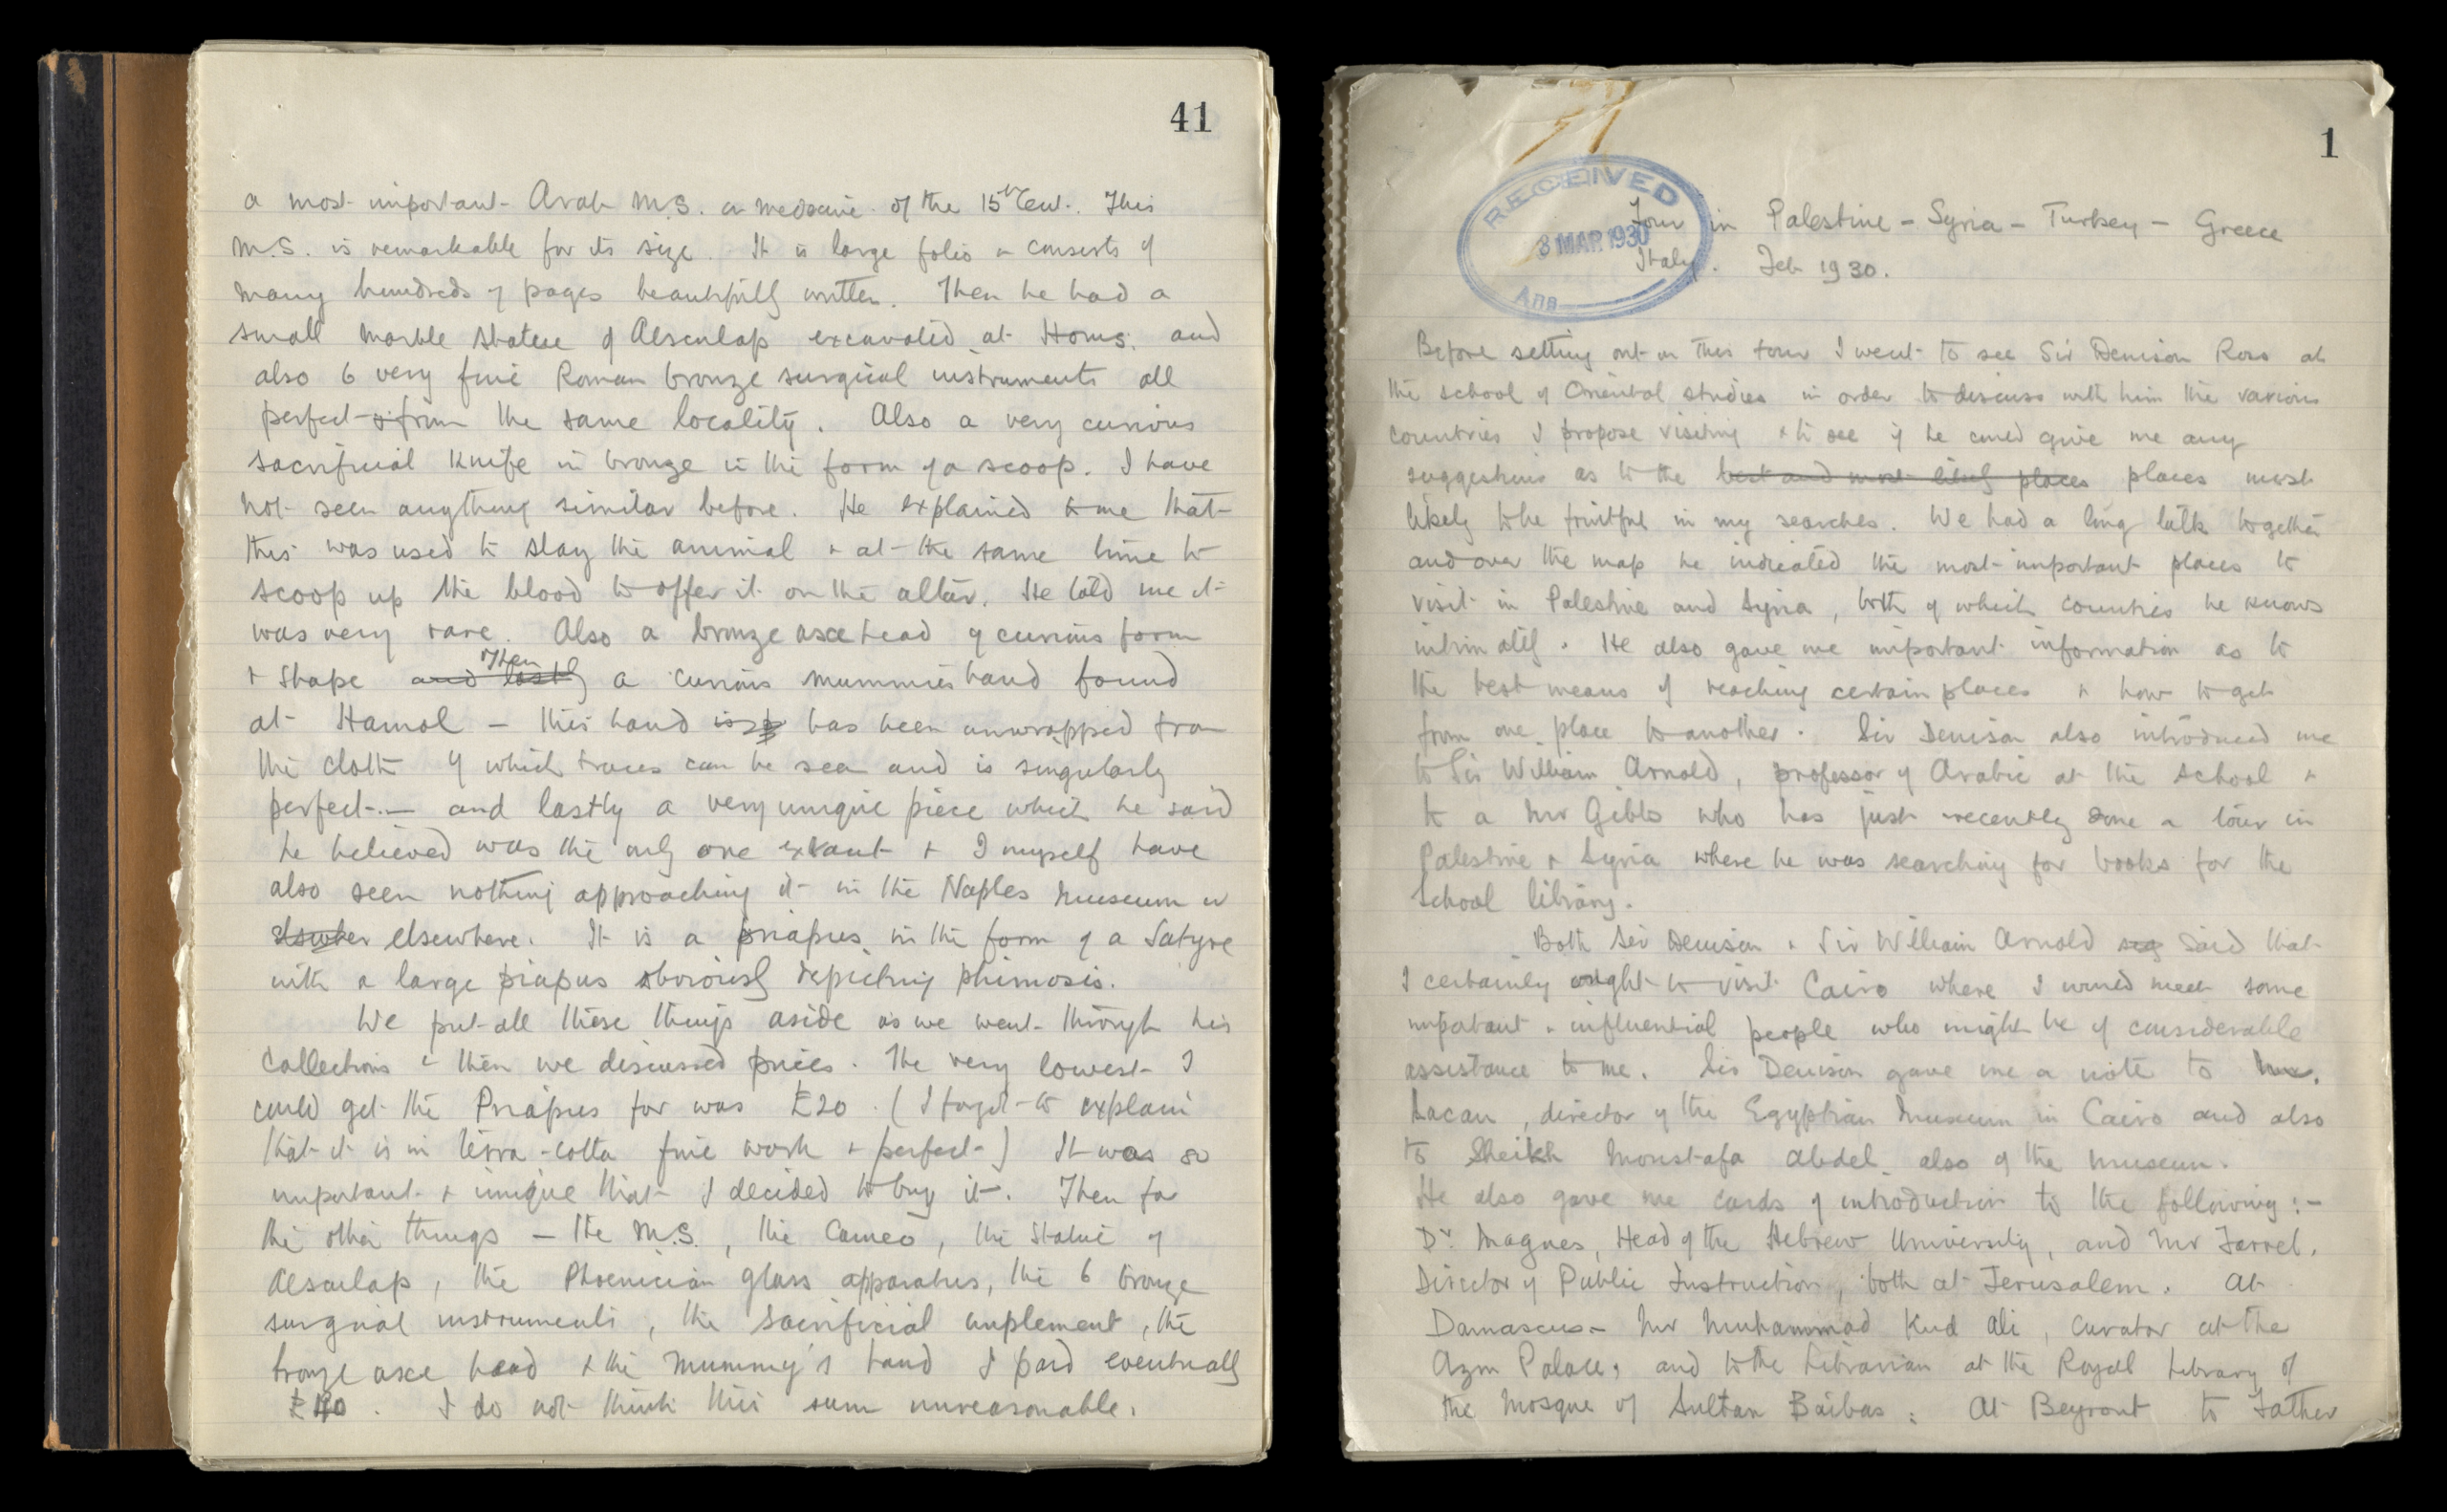 41
a most important Arab M.S. on medecine of the 15th Cent. This
M.S. is remarkable for its size. It is large folio & consists of
many hundreds of pages beautifully written. Then he had a
small marble statue of Aesculap excavated at Homs. and
also 6 very fine Roman bronze surgical instruments all
perfect & from the same locality. Also a very curious
sacrificial knife in bronze in the form of a scoop. I have
not seen anything similar before. He explained to me that
this was used to slay the animal & at the same time to
scoop up the blood to offer it on the altar. He told me it
was very rare. Also a bronze axe head of curious form
& shape and lastly then a curious mummies hand found
at Hamol - this hand is has been unwrapped from
the cloth of which traces can be seen and is singularly
perfect. - and lastly a very unique piece which he said
he believed was the only one extant & I myself have
also seen nothing approaching it in the Naples Museum or
elsewhere. It is a priapus in the form of a Satyre
with a large piapus obviously depicting phimosis.
We put all these things aside as we went through his
collections & then we discussed prices. The very lowest I
could get the Priapus for was £20. (I forgot to explain
that it is in terra-cotta fine work & perfect) It was so
important & unique that I decided to buy it. Then for
the other things - the M.S., the Cameo, the Statue of
Aesculap, the Phoenician glass apparatus, the 6 bronze
surgical instruments, the sacrificial implement, the
bronze axe head & the Mummy's hand I paid eventually
. I do not think this sum unreasonable.
1
RECEIVED
3 MAR 1930
Ans
Tour in Palestine - Syria - Turkey - Greece
Italy. Feb 1930.
Before setting out on this tour I went to see Sir Denison Ross at
the school of Oriental studies in order to discuss with him the various
countries I propose visiting & to see if he could give me any
suggestions as to the best and most likely places places most
likely to be fruitful in my searches. We had a long talk together
and over the map he indicated the most important places to
visit in Palestine and Syria, both of which countries he knows
intimately. He also gave me important information as to
the best means of reaching certain places & how to get
from one place to another. Sir Denison also introduced me
to Sir William Arnold, professor of Arabic at the school &
to a Mr Gibbs who has just recently done a tour in
Palestine & Syria where he was searching for books for the
School library.
Both Sir Denison & Sir William Arnold said that
I certainly ought to visit Cairo where I would meet some
important & influential people who might be of considerable
assistance to me. Sir Denison gave me a note to
Lacau, director of the Egyptian Museum in Cairo and also
to Sheikh Moustafa Abdel also of the museum.
He also gave me cards of introduction to the following :-
Dr. Magnes, Head of the Hebrew University, and Mr Farrel.
Director of Public Instruction, both at Jerusalem. At
Damascus - Mr Muhammad Kurd Ali, Curator at the
Azm Palace, and to the Librarian at the Royal Library of
the Mosque of Sultan Baibas: At Beyrout to Father